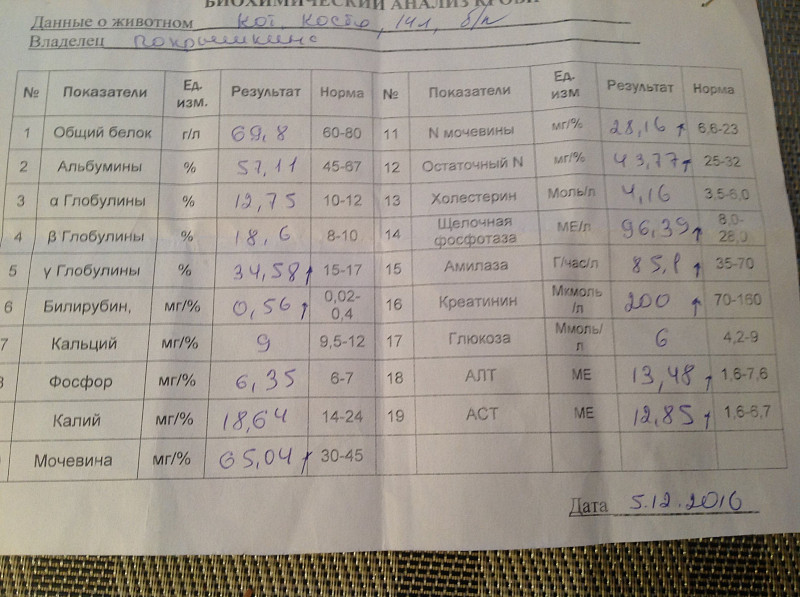 БИОХИМИЧЕСКИЙ АНАЛИЗ КРОВИ
Данные о животном кот, Костя, 14л, б/п
Владелец
№ Показатели Ед. изм. Результат Норма № Показатели Ед. изм Результат Норма
1 Общий белок г/л 69,8 60-80 11 N мочевины мг/% 28,16↑ 6,6-23
2 Альбумины % 57,11 45-67 12 Остаточный N мг/% 43,77↑ 25-32
3 α Глобулины % 12,75 10-12 13 Холестерин Моль/л 4,16 3,5-6,0
4 β Глобулины % 18,6 8-10 14 Щелочная фосфотаза МЕ/л 96,39↑ 8,0-28,0
5 γ Глобулины % 34,58↑ 15-17 15 Амилаза Г/час/л 85,1 35-70
6 Билирубин, мг/% 0,56↑ 0,02-0,4 16 Креатинин Мкмоль/л 200↑ 70-160
7 Кальций мг/% 9 9,5-12 17 Глюкоза Ммоль/л 6 4,2-9
8 Фосфор мг/% 6,35 6-7 18 АЛТ МЕ 13,48↑ 1,6-7,6
Калий мг/% 18,64 14-24 19 АСТ МЕ 12,85↑ 1,6-6,7
Мочевина мг/% 65,04↑ 30-45
Дата 5.12.2016